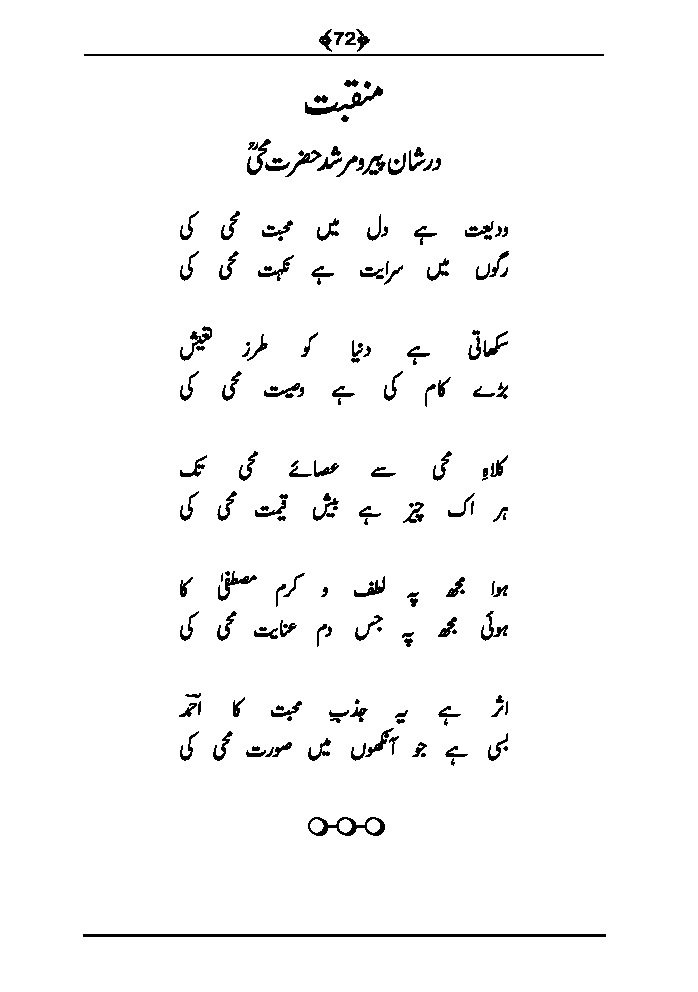 ﴿72﴾
منقبت
در شان پیر و مرشد حضرت محیؒ
ودیعت ہے دل میں محبت محی کی
رگوں میں سرایت ہے نکہت محی کی
سکھاتی ہے دنیا کو طرز تعیش
بڑے کام کی ہے وصیت محی کی
کلاہِ محی سے عصائے محی تک
ہر اک چیز ہے بیش قیمت محی کی
ہوا مجھ پہ لطف و کرم مصطفیٰ کا
ہوئی مجھ پہ جس دم عنایت محی کی
اثر ہے یہ جذب محبت کا احمدؔ
بسی ہے جو آنکھوں میں صورت محی کی